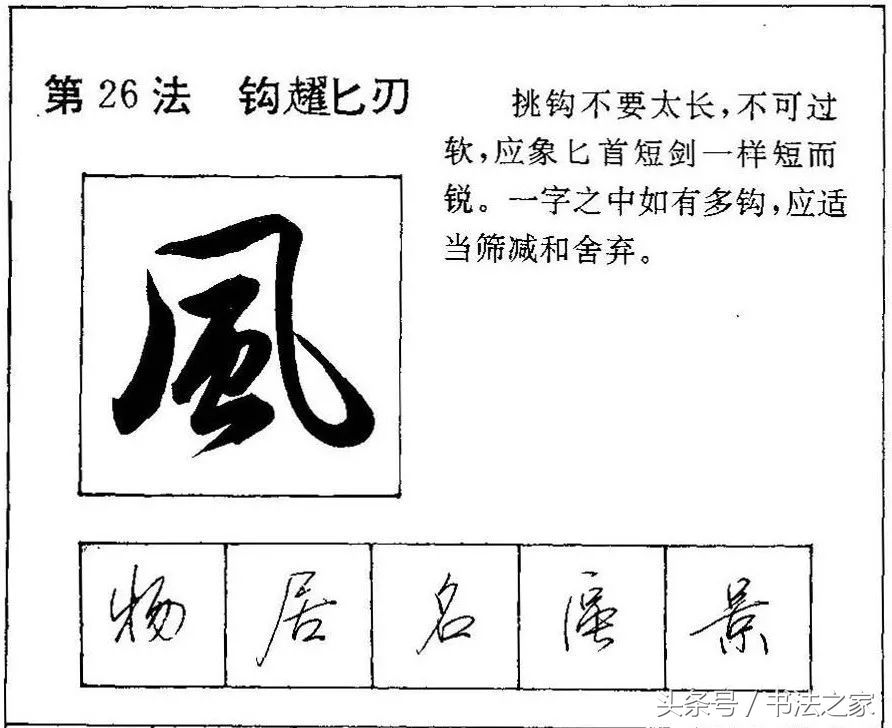 第26法 钩趯匕刃
挑钩不要太长，不可过
软，应象匕首短剑一样短而
锐。一字之中如有多钩，应适
当筛减和舍弃。
風
物 居 名 景
头条号／书法之家